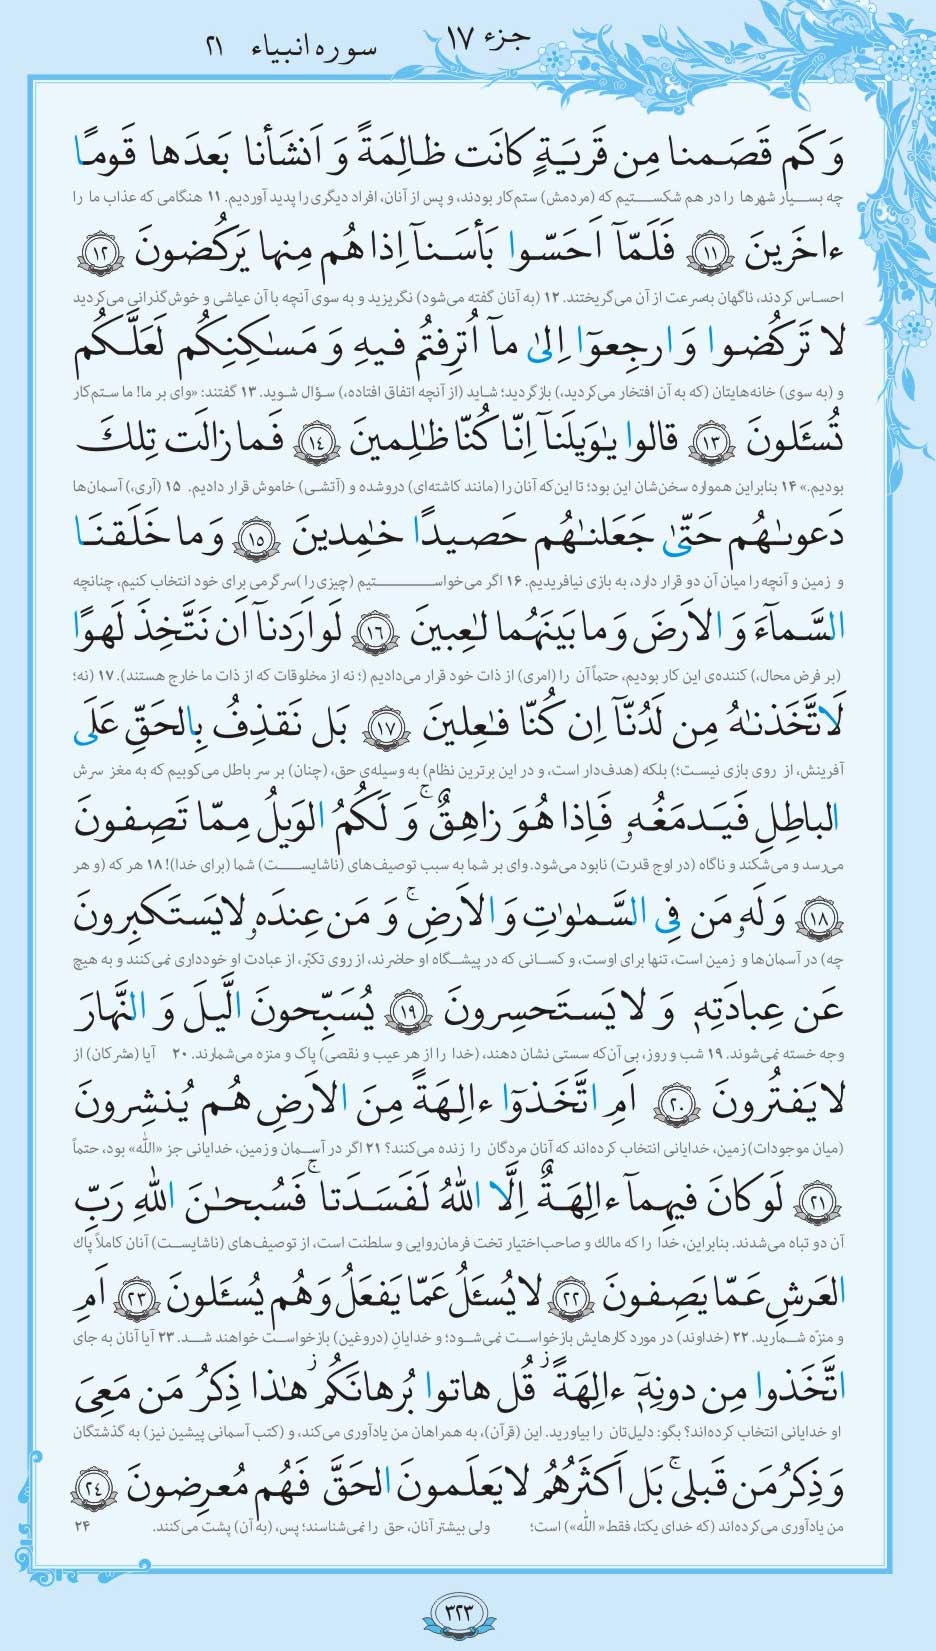 جزء ۱۷
سوره انبیاء ۲۱
وَ كَم قَصَمنا مِن قَريَةٍ كانَت ظالِمَةً وَ اَنشَأنا بَعدَها قَومًا
چه بسیار شهرها را در هم شکستیم که (مردمش) ستم‌کار بودند، و پس از آنان، افراد دیگری را پدید آوردیم. ۱۱ هنگامی که عذاب ما را
ءاخَرينَ ﴿۱۱﴾ فَلَمّآ اَحَسّوا بَأسَنآ اِذا هُم مِنها يَركُضونَ ﴿۱۲﴾
احساس کردند، ناگهان به‌سرعت از آن می‌گریختند. ۱۲ (به آنان گفته می‌شود) نگریزید و به سوی آنچه با آن عیاشی و خوش‌گذرانی می‌کردید
لا تَركُضوا وَ ارجِعوٓا اِلىٰ مآ اُترِفتُم فيهِ وَ مَسـٰكِنِكُم لَعَلَّكُم
و (به سوی) خانه‌هایتان (که به آن افتخار می‌کردید،) بازگردید؛ شاید (از آنچه اتفاق افتاده،) سؤال شوید. ۱۳ گفتند: «وای بر ما! ما ستم‌کار
تُسـَٔلونَ ﴿۱۳﴾ قالوا يـٰوَيلَنآ اِنّا كُنّا ظـٰلِمينَ ﴿۱٤﴾ فَما زالَت تِلكَ
بودیم.» ۱۴ بنابراین همواره سخن‌شان این بود؛ تا این‌که آنان را (مانند کاشته‌ای) دروشده و (آتشی) خاموش قرار دادیم. ۱۵ (آری،) آسمان‌ها
دَعوىٰهُم حَتّىٰ جَعَلنـٰهُم حَصيدًا خـٰمِدينَ ﴿۱۵﴾ وَ ما خَلَقنَا
و زمین و آنچه را میان آن دو قرار دارد، به بازی نیافریدیم. ۱۶ اگر می‌خواستیم (چیزی را) سرگرمی برای خود انتخاب کنیم، چنانچه
السَّمآءَ وَ الاَرضَ وَ ما بَينَهُما لـٰعِبينَ ﴿۱٦﴾ لَو اَرَدنآ اَن نَتَّخِذَ لَهوًا
(بر فرض محال،) کننده‌ی این کار بودیم، حتماً آن را (امری) از ذات خود قرار می‌دادیم (؛ نه از مخلوقات که از ذات ما خارج هستند). ۱۷ (نه؛
لَاتَّخَذنـٰهُ مِن لَدُنّآ اِن كُنّا فـٰعِلينَ ﴿۱۷﴾ بَل نَقذِفُ بِالحَقِّ عَلَى
آفرینش، از روی بازی نیست؛) بلکه (هدف‌دار است، و در این برترین نظام) به وسیله‌ی حق، (چنان) بر سر باطل می‌کوبیم که به مغز سرش
الباطِلِ فَيَدمَغُهو فَاِذا هُوَ زاهِقٌ ۚ وَ لَكُمُ الوَيلُ مِمّا تَصِفونَ
می‌رسد و می‌شکند و ناگاه (در اوج قدرت) نابود می‌شود. وای بر شما به سبب توصیف‌های (ناشایست) شما (برای خدا)! ۱۸ هر که (و هر
﴿۱۸﴾ وَ لَهو مَن فِى السَّمـٰوٰتِ وَ الاَرضِ ۚ وَ مَن عِندَهو لا يَستَكبِرونَ
چه) در آسمان‌ها و زمین است، تنها برای اوست، و کسانی که در پیشگاه او حاضرند، از روی تکبّر، از عبادت او خودداری نمی‌کنند و به هیچ
عَن عِبادَتِه‌ي وَ لا يَستَحسِرونَ ﴿۱۹﴾ يُسَبِّحونَ الَّيلَ وَ النَّهارَ
وجه خسته نمی‌شوند. ۱۹ شب و روز، بی آن‌که سستی نشان دهند، (خدا را از هر عیب و نقصی) پاک و منزه می‌شمارند. ۲۰ آیا (مشرکان) از
لا يَفتُرونَ ﴿۲۰﴾ اَمِ اتَّخَذوٓا ءالِهَةً مِنَ الاَرضِ هُم يُنشِرونَ
(میان موجودات) زمین، خدایانی انتخاب کرده‌اند که آنان مردگان را زنده می‌کنند؟ ۲۱ اگر در آسمان و زمین، خدایانی جز «اللّه» بود، حتماً
﴿۲۱﴾ لَو كانَ فيهِمآ ءالِهَةٌ اِلَّا اللّٰهُ لَفَسَدَتا ۚ فَسُبحـٰنَ اللّٰهِ رَبِّ
آن دو تباه می‌شدند. بنابراین، خدا را که مالک و صاحب‌اختیار تخت فرمان‌روایی و سلطنت است، از توصیف‌های (ناشایست) آنان کاملاً پاک
العَرشِ عَمّا يَصِفونَ ﴿۲۲﴾ لا يُسـَٔلُ عَمّا يَفعَلُ وَ هُم يُسـَٔلونَ ﴿۲۳﴾ اَمِ
و منزّه شمارید. ۲۲ (خداوند) در مورد کارهایش بازخواست نمی‌شود؛ و خدایانِ (دروغین) بازخواست خواهند شد. ۲۳ آیا آنان به جای
اتَّخَذوا مِن دونِه‌ي ءالِهَةً ۖ قُل هاتوا بُرهانَكُم ۖ هـٰذا ذِكرُ مَن مَعِىَ
او خدایانی انتخاب کرده‌اند؟ بگو: دلیل‌تان را بیاورید. این (قرآن)، به همراهان من یادآوری می‌کند، و (کتب آسمانی پیشین نیز) به گذشتگان
وَ ذِكرُ مَن قَبلى ۚ بَل اَكثَرُهُم لا يَعلَمونَ الحَقَّ فَهُم مُعرِضونَ ﴿۲٤﴾
من یادآوری می‌کرده‌اند (که خدای یکتا، فقط «اللّه») است؛ ولی بیشتر آنان، حق را نمی‌شناسند؛ پس، (به آن) پشت می‌کنند. ۲۴
۳۲۳